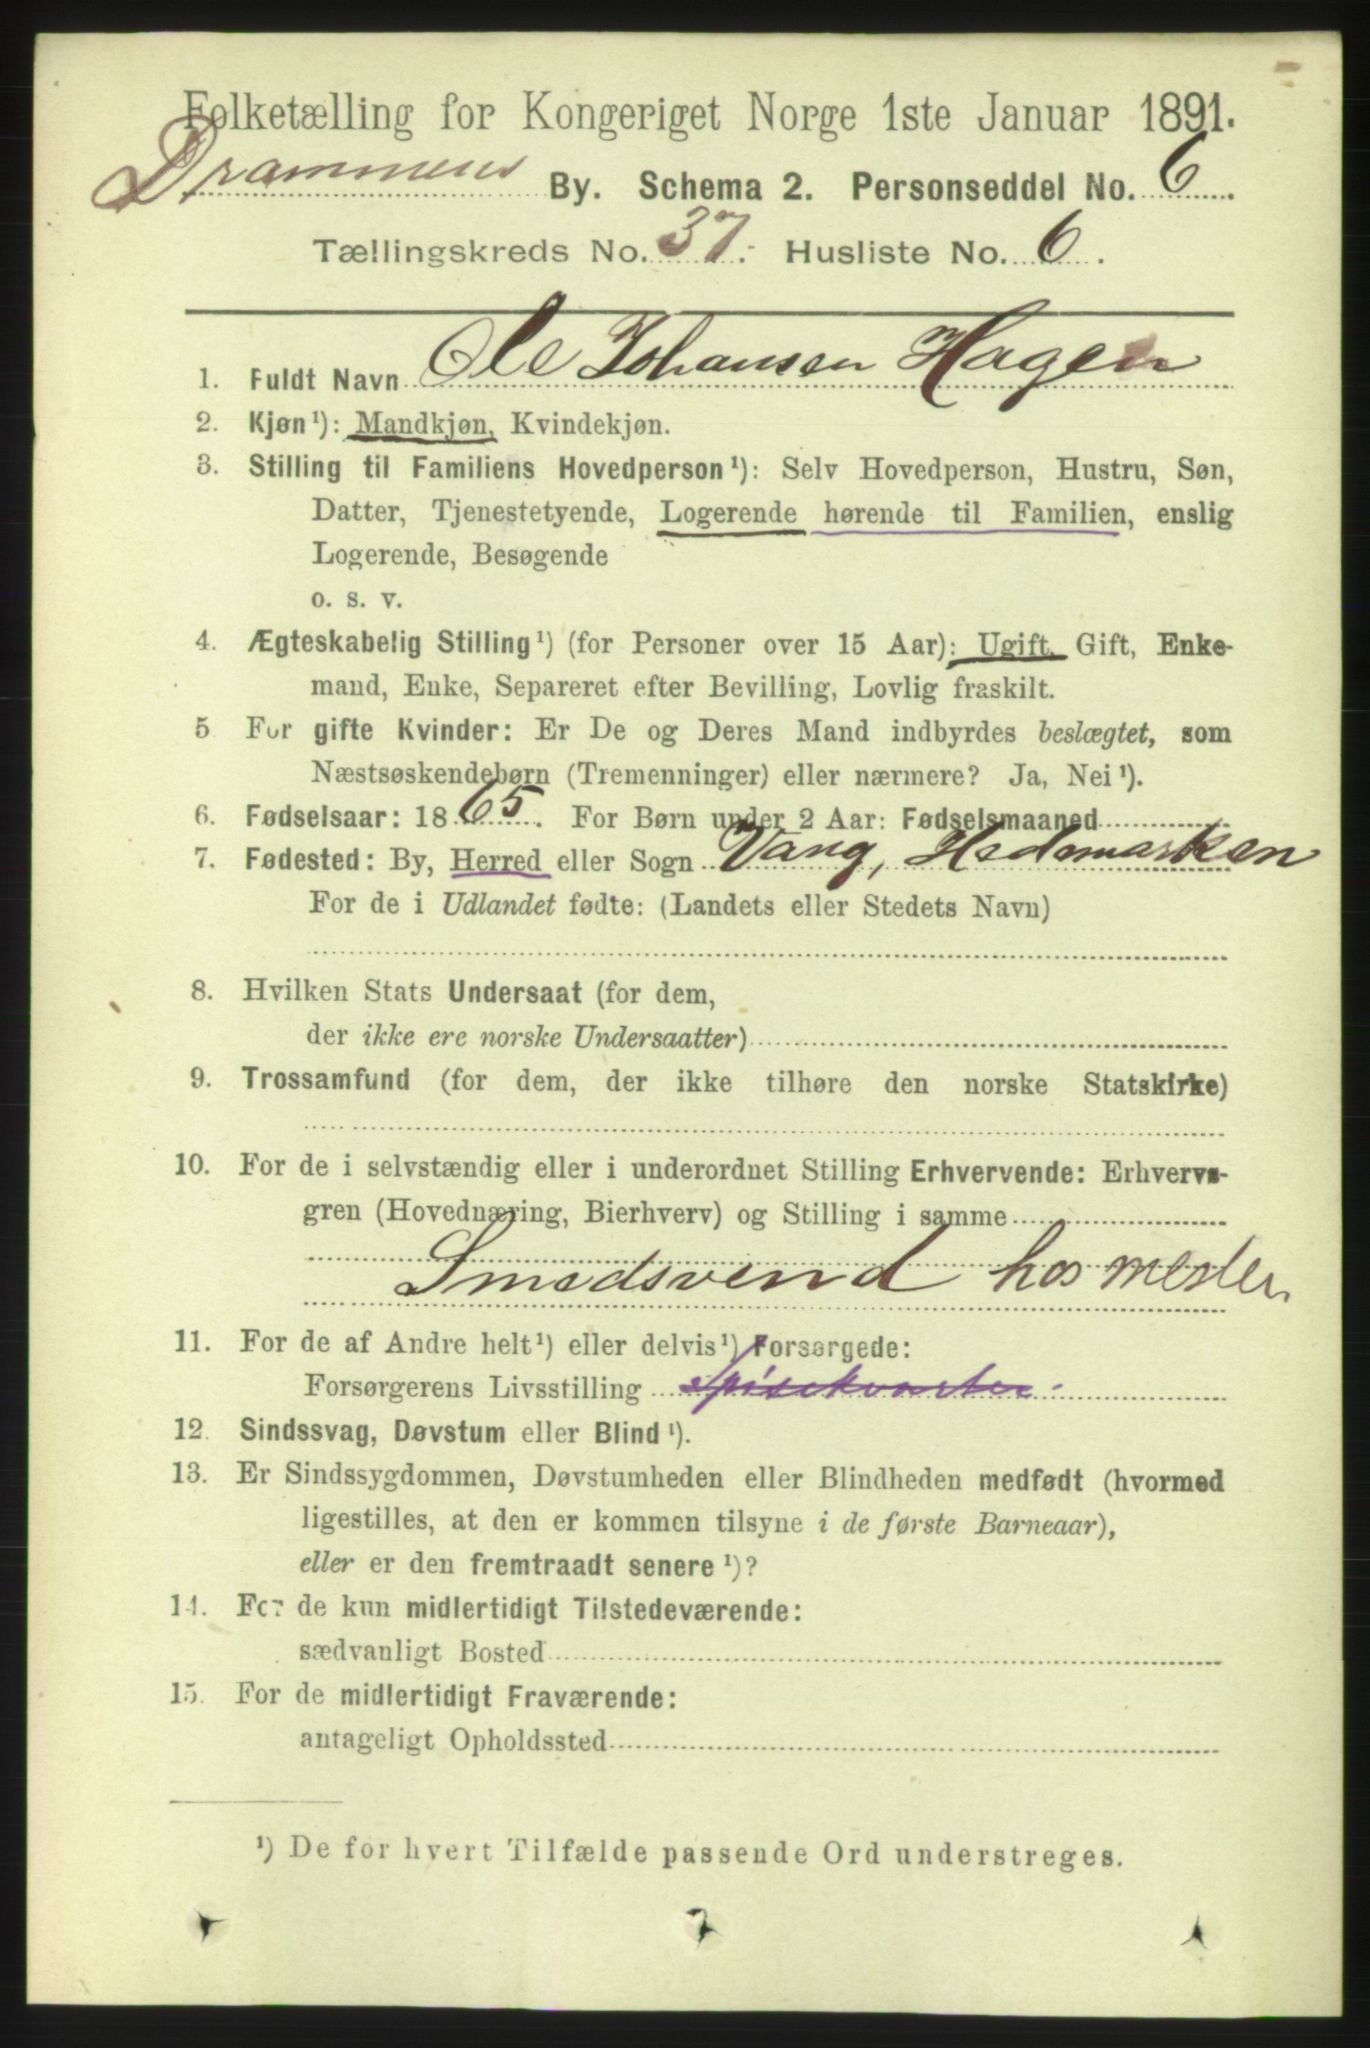 Folketælling for Kongeriget Norge 1ste Januar 1891.
Drammens By. Schema 2. Personseddel No. 6.
Tællingskreds No. 37. Husliste No. 6.
1. Fuldt Navn Ole Johansen Hagen
2. Kjøn¹): Mandkjøn, Kvindekjøn.
3. Stilling til Familiens Hovedperson¹): Selv Hovedperson, Hustru, Søn,
Datter, Tjenestetyende, Logerende hørende til Familien, enslig
Logerende, Besøgende
o. s. v.
4. Ægteskabelig Stilling¹) (for Personer over 15 Aar): Ugift, Gift, Enke-
mand, Enke, Separeret efter Bevilling, Lovlig fraskilt.
5 For gifte Kvinder: Er De og Deres Mand indbyrdes beslægtet, som
Næstsøskendebørn (Tremenninger) eller nærmere? Ja, Nei¹).
6. Fødselsaar: 1865. For Børn under 2 Aar: Fødselsmaaned
7. Fødested: By, Herred eller Sogn Vang, Hedemarken
For de i Udlandet fødte: (Landets eller Stedets Navn)
8. Hvilken Stats Undersaat (for dem,
der ikke ere norske Undersaatter)
9. Trossamfund (for dem, der ikke tilhøre den norske Statskirke)
10. For de i selvstændig eller i underordnet Stilling Erhvervende: Erhvervs-
gren (Hovednæring, Bierhverv) og Stilling i samme
Smedsvend hos mester
11. For de af Andre helt¹) eller delvis¹) Forsørgede:
Forsørgerens Livsstilling Spisekvarter.
12. Sindssvag, Døvstum eller Blind¹).
13. Er Sindssygdommen, Døvstumheden eller Blindheden medfødt (hvormed
ligestilles, at den er kommen tilsyne i de første Barneaar),
eller er den fremtraadt senere¹)?
14. For de kun midlertidigt Tilstedeværende:
sædvanligt Bosted
15. For de midlertidigt Fraværende:
antageligt Opholdssted
¹) De for hvert Tilfælde passende Ord understreges.